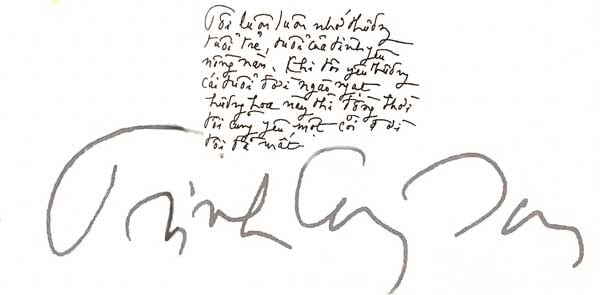 Tôi luôn luôn nhớ thương
tuổi trẻ, tuổi của tình yêu
nồng nàn. Khi tôi yêu thương
cái tuổi trời ngào ngạt
hương hoa này thì đồng thời
tôi cũng yêu một cõi đời
tôi đã mất
Trịnh Công Sơn